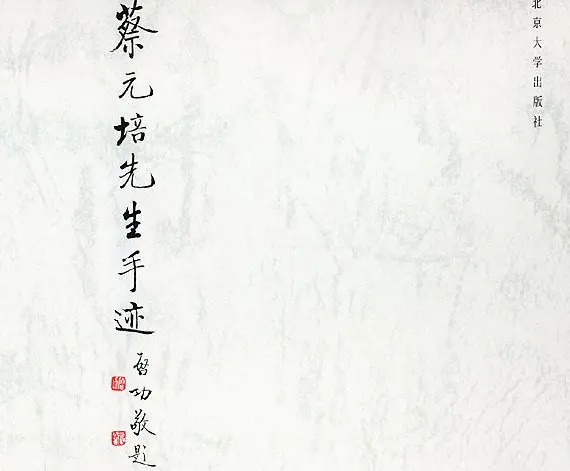 北京大学出版社
蔡元培先生手迹
启功敬题